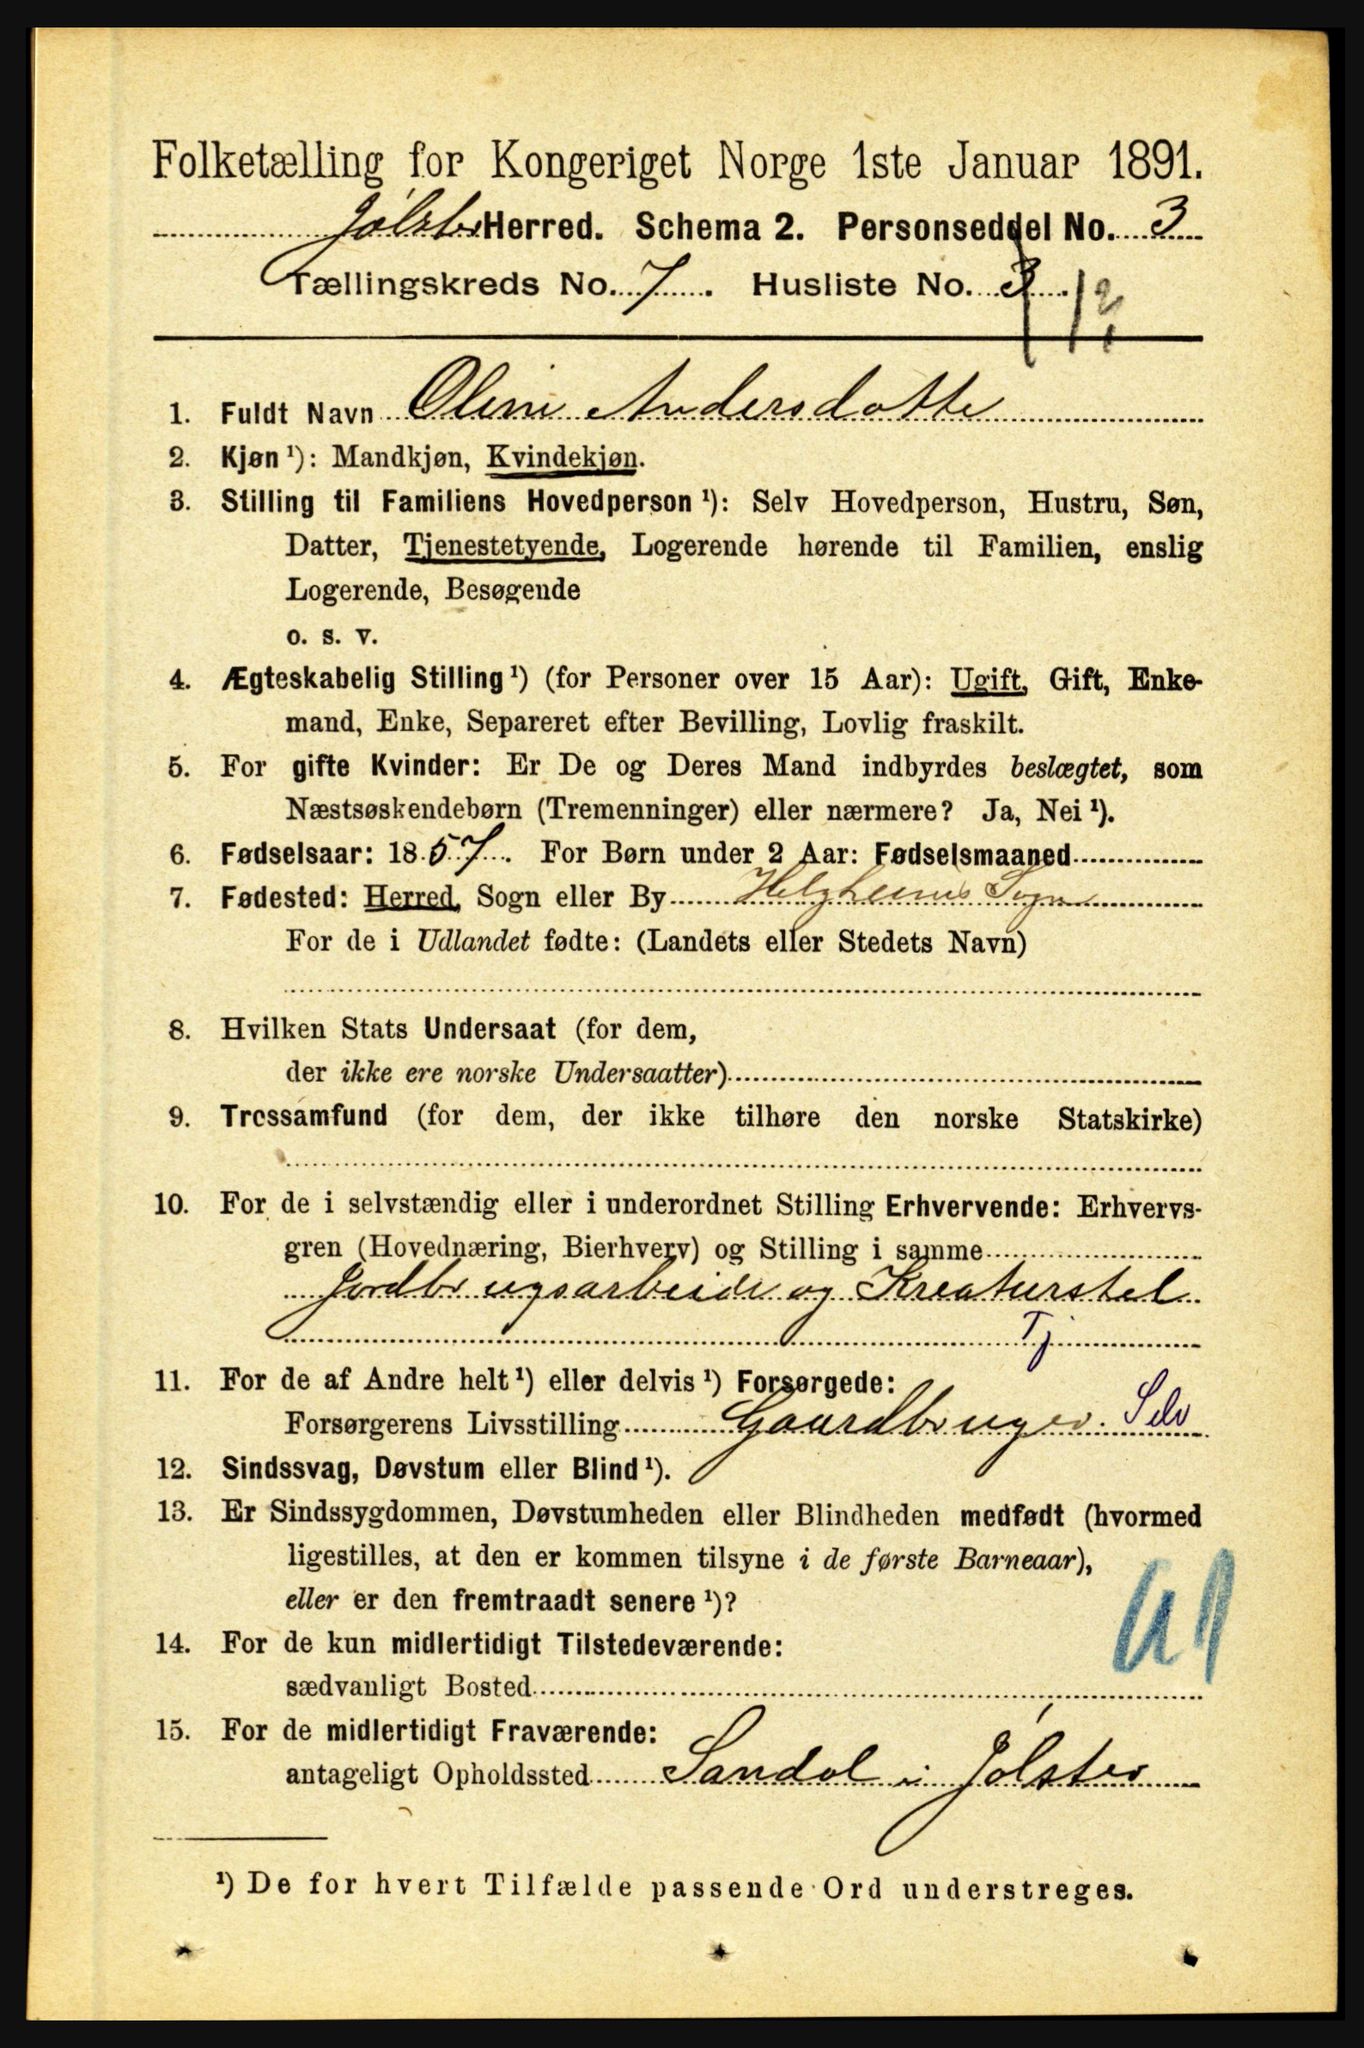 Folketælling for Kongeriget Norge 1ste Januar 1891.
Jølster Herred. Schema 2. Personseddel No. 3
Tællingskreds No. 7. Husliste No. 3. 12
1. Fuldt Navn Oline Andersdotte
2. Kjøn ¹): Mandkjøn, Kvindekjøn.
3. Stilling til Familiens Hovedperson ¹): Selv Hovedperson, Hustru, Søn,
Datter, Tjenestetyende, Logerende hørende til Familien, enslig
Logerende, Besøgende
o. s. v.
4. Ægteskabelig Stilling ¹) (for Personer over 15 Aar): Ugift, Gift, Enke-
mand, Enke, Separeret efter Bevilling, Lovlig fraskilt.
5. For gifte Kvinder: Er De og Deres Mand indbyrdes beslægtet, som
Næstsøskendebørn (Tremenninger) eller nærmere? Ja, Nei ¹).
6. Fødselsaar: 1857. For Børn under 2 Aar: Fødselsmaaned
7. Fødested: Herred, Sogn eller By Helgheims Sogn
For de i Udlandet fødte: (Landets eller Stedets Navn)
8. Hvilken Stats Undersaat (for dem,
der ikke ere norske Undersaatter)
9. Trossamfund (for dem, der ikke tilhøre den norske Statskirke)
10. For de i selvstændig eller i underordnet Stilling Erhvervende: Erhvervs-
gren (Hovednæring, Bierhverv) og Stilling i samme
Jordbrugsarbeide og Kreaturstel
Tj
11. For de af Andre helt ¹) eller delvis ¹) Forsørgede:
Forsørgerens Livsstilling Gaardbruger. Selv
12. Sindssvag, Døvstum eller Blind ¹).
13. Er Sindssygdommen, Døvstumheden eller Blindheden medfødt (hvormed
ligestilles, at den er kommen tilsyne i de første Barneaar),
eller er den fremtraadt senere ¹)?
14. For de kun midlertidigt Tilstedeværende:
sædvanligt Bosted
15. For de midlertidigt Fraværende:
antageligt Opholdssted Sandal i Jølster
¹) De for hvert Tilfælde passende Ord understreges.